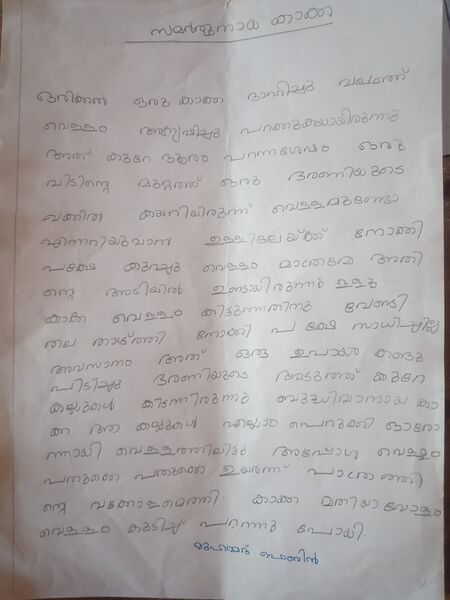 സമർത്ഥനായ കാക്ക
ഒരിക്കൽ ഒരു കാക്ക ദാഹിച്ചു വലഞ്ഞ്
വെള്ളം അന്വേഷിച്ചു പറക്കുകയായിരുന്നു
അത് കുറേ ദൂരം പറന്നശേഷം ഒരു
വീടിന്റെ മുറ്റത്ത് ഒരു ഭരണിയുടെ
വക്കിൽ ചെന്നിരുന്ന് വെള്ളമുണ്ടോ
എന്നറിയുവാൻ ഉള്ളിലേയ്ക്ക് നോക്കി
പക്ഷേ കുറച്ചു വെള്ളം മാത്രമേ അതി
ന്റെ അടിയിൽ ഉണ്ടായിരുന്നു ള്ളു
കാക്ക വെള്ളം കിട്ടുന്നതിനു വേണ്ടി
തല താഴ്ത്തി നോക്കി പ ക്ഷേ സാധിച്ചില്ല
അവസാനം അത് ഒരു ഉപായം കണ്ടു
പിടിച്ചു ഭരണിയുടെ അടുത്ത് കുറേ
കല്ലുകൾ കിടന്നിരുന്നു ബുദ്ധിമാനായ കാ
ക്ക ആ കല്ലുകൾ എല്ലാം പെറുക്കി ഓരോ
ന്നായി വെള്ളത്തിലിട്ടു അപ്പോൾ വെള്ളം
പതുക്കെ പതുക്കെ ഉയർന്ന് പാത്രത്തി
ന്റെ വക്കോളമെത്തി. കാക്ക മതിയാ വോളം
വെള്ളം കുടിച്ച് പറന്നു പോയി.
മുഹമ്മദ് ഫെബിൻ